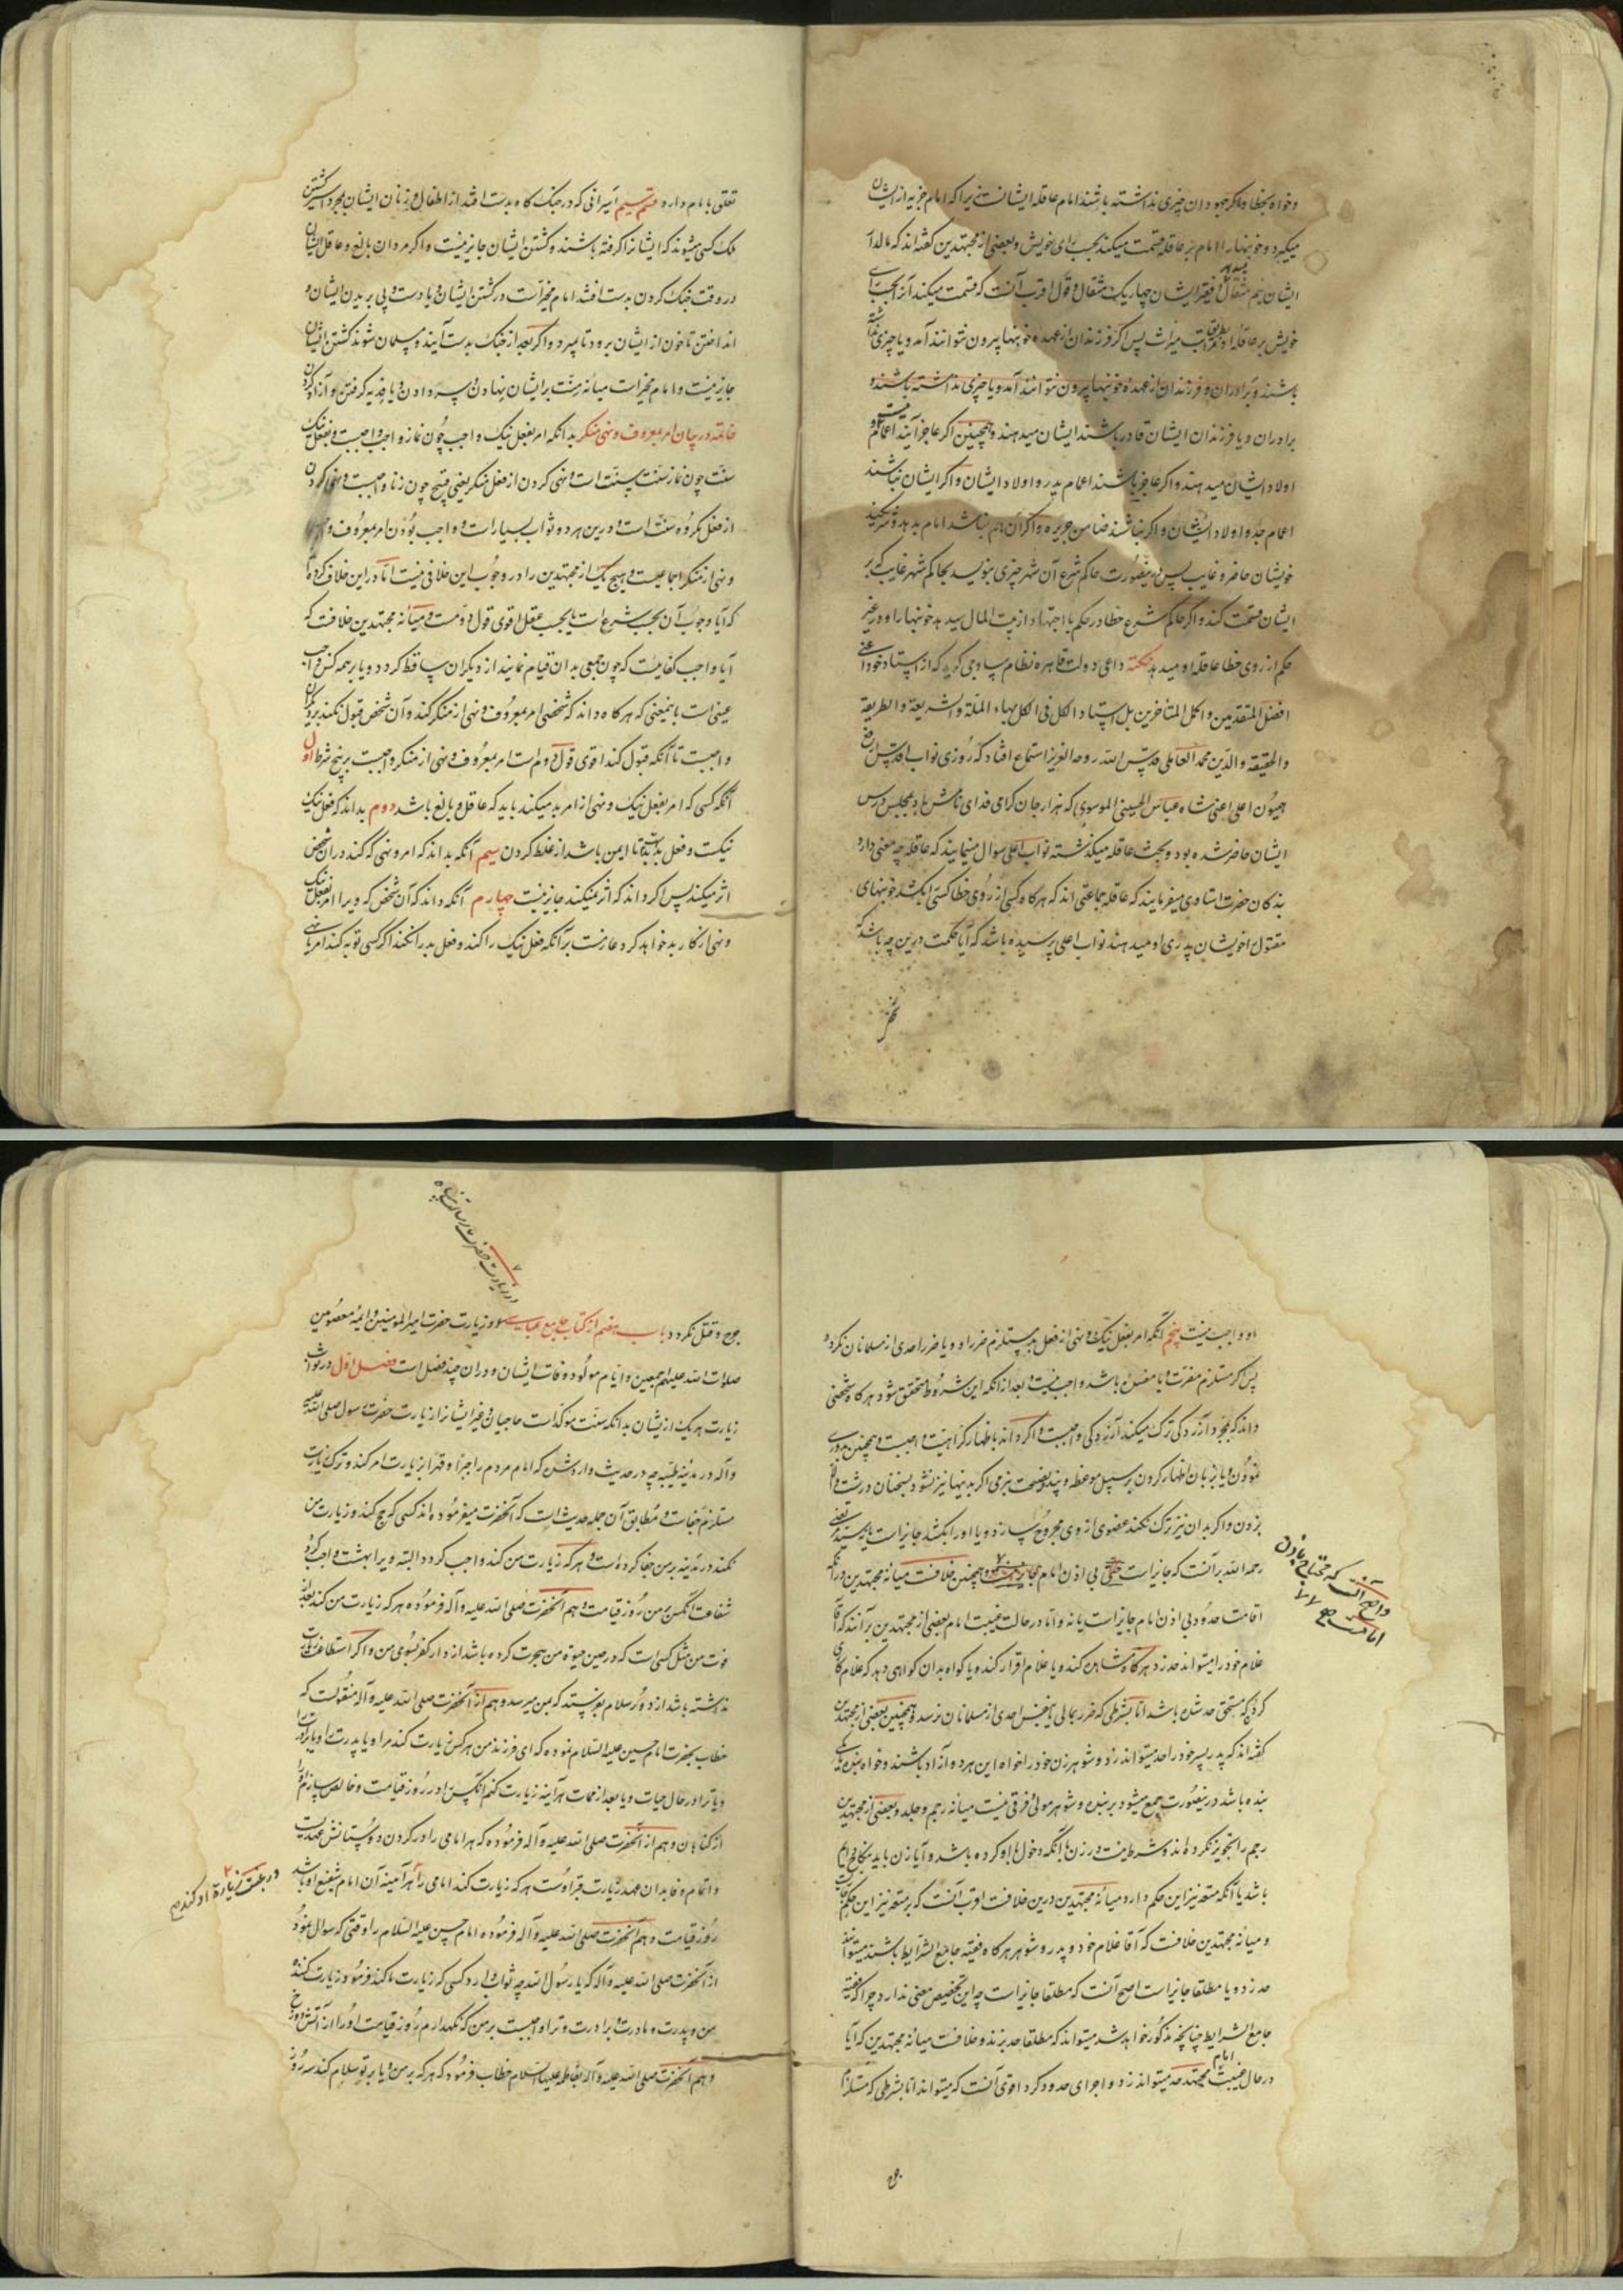 وخواه بخطا واگر جهودان چیزی نداشته باشند امام عاقله ایشانست زیرا که امام جزیه از ایشان
میگیرد وخونبها را امام بر عاقله قسمت میکند بحسب رای خویش وبعضی از مجتهدین گفته اند که مالدار
ایشان نیم مثقال بدهد وفقیر ایشان چهاریک مثقال وقول اقرب آنست که قسمت میکند آنرا بحسب رای
خویش بر عاقله او بطریق مراتب میراث پس اگر فرزندان از عهده خونبها بیرون نتوانند آمد ویا چیزی نداشته
باشند وبرادران وفرزندان از عهده خونبها بیرون نتوانند آمد ویا چیزی نداشته باشند و
برادران ویا فرزندان ایشان قادر باشند ایشان میدهند وهمچنین اگر عاجز آیند اعمام میت و
اولاد ایشان میدهند واگر عاجز باشند اعمام پدر واولاد ایشان واگر ایشان نباشند
اعمام جد واولاد ایشان واگر نباشند ضامن جریره واگر آن هم نباشد امام بدهد وشریکند
خویشان حاضر وغایب پس درینصورت حاکم شرع آن شهر چیزی بنویسد بحاکم شهر غایب که بر
ایشان قسمت کند واگر حاکم شرع خطا در حکم با اجتهاد از بیت المال میدهد خونبها را ودر غیر
حکم از روی خطا عاقله او میدهد نکته داعی دولت قاهره نظام ساوجی گوید که از استاد خود اعنی
افضل المتقدمین واکمل المتأخرین بل استاد الکل فی الکل بهاء الملة والشریعة والطریقة
والحقیقة والدین محمد العاملی قدس الله روحه العزیز استماع افتاد که روزی نواب اقدس ارفع
همیون اعلی اعنی شاه عباس الحسینی الموسوی که هزار جان گرامی فدای نامش باد بمجلس درس
ایشان حاضر شده بود وبحث عاقله میگذشته نواب اعلی سوال مینمایند که عاقله چه معنی دارد
بندگان حضرت استادی میفرمایند که عاقله جماعتی اند که هرگاه کسی از روی خطا کسی را بکشد خونبهای
مقتول را خویشان پدری او میدهند نواب اعلی پرسیده باشد که آیا حکمت درین چه باشد که
تعلق بامام دارد قسم سیم اسیرانی که در جنگ گاه بدست افتد از اطفال وزنان ایشان بمجرد اسیر گشتن
ملک کسی میشوند که ایشانرا گرفته باشند وکشتن ایشان جایز نیست واگر مردان بالغ وعاقل ایشان
در وقت جنگ کردن بدست افتند امام مخیر است در کشتن ایشان ویا دست وپی بریدن ایشان و
انداختن تا خون از ایشان برود تا بمیرد واگر بعد از جنگ بدست آیند ومسلمان شوند کشتن ایشان
جایز نیست وامام مخیر است میانه منت بر ایشان نهادن وسر دادن ویا فدیه گرفتن وآزاد کردن
خاتمه در بیان امر بمعروف ونهی منکر بدانکه امر بفعل نیک واجب چون نماز واجب واجبست وبفعل نیک
سنت چون نماز سنت سنت است ونهی کردن از فعل منکر یعنی قبیح چون زنا واجبست ونهی کردن
از فعل مکروه سنت است ودرین هر دو ثواب بسیار است وواجب بودن امر بمعروف و
ونهی از منکر اجماعیست وهیچ یک از مجتهدین را در وجوب این خلافی نیست اما در این خلاف کرده اند
که آیا وجوب آن بحسب شرع است یا بحسب عقل اقوی قول دومست ومیانه مجتهدین خلافست که
آیا واجب کفائیست که چون جمعی بدان قیام نمایند از دیگران ساقط گردد ویا بر همه کس واجب
عینی است باینمعنی که هرگاه داند که شخصی امر بمعروف ونهی از منکر کند وآن شخص قبول نکند بر دیگران
واجبست تا آنکه قبول کند اقوی قول دوم است امر بمعروف ونهی از منکر واجبست بر پنج شرط اول
آنکه کسی که امر بفعل نیک ونهی از امر بد میکند باید که عاقل وبالغ باشد دوم بداند که فعل نیک
نیکست وفعل بد بدست تا ایمن باشد از غلط کردن سیم آنکه بداند که امر ونهی که کند در آن شخص
اثر میکند پس اگر داند که اثر نمیکند جایز نیست چهارم آنکه داند که آن شخص که ویرا امر بفعل نیک
ونهی از کار بد خواهد کرد عازمست بر آنکه فعل نیک را نکند وفعل بد را نکند اگر کسی توبه کند امر یا نهی
او واجب نیست پنجم آنکه امر بفعل نیک ونهی از فعل بد مستلزم ضرر او ویا ضرر احدی از مسلمانان نگردد
پس اگر مستلزم مضرت ویا مفسده باشد واجب نیست وبعد از آنکه این شروط متحقق شود هرگاه شخصی
داند که بمجرد آزردگی ترک میکند آزردگی واجبست واگر داند باظهار کراهیت واجبست وهمچنین بدوری
نمودن ویا بزبان اظهار کردن بر سبیل موعظه وپند ونصیحت بنرمی اگر بدینها نیز نشود بسخنان درشت واگر
بزدن واگر بدان نیز ترک نکند عضوی از وی مجروح سازد ویا اورا بکشد جایز است یا نه سید مرتضی
رحمه الله بر آنست که جایز است حتی بی اذن امام وهمچنین خلافست میانه مجتهدین در آنکه
اقامت حدود بی اذن امام جایز است یا نه واما در حالت غیبت امام بعضی از مجتهدین بر آنند که آقا
غلام خود را میتواند حد زد هرگاه مشاهده کند ویا غلام اقرار کند ویا گواه بدان گواهی دهد که غلام کاری
کرده که مستحق حد شده باشد اما بشرطی که ضرر بمالی یا بنفس احدی از مسلمانان نرسد وهمچنین بعضی از مجتهدین
گفته اند که پدر پسر خود را حد میتواند زد وشوهر زن خود را خواه این هر دو آزاد باشند وخواه بنده یا یکی
بنده باشد درینصورت جمع میشود بر بنده وشوهر مولی وفرقی نیست میانه رجم وجلد وبعضی از مجتهدین
رجم را تجویز نکرده اند وشرط نیست در زن آنکه دخول باو کرده باشد وآیا زن باید بنکاح دایم
باشد یا آنکه متعه نیز این حکم دارد میانه مجتهدین درین خلافست اقرب آنست که بر متعه نیز این حکم جاریست
ومیانه مجتهدین خلافست که آقا غلام خود وپدر وشوهر هرگاه فقیه جامع الشرایط باشند میتوانند
حد زد ویا مطلقا جایز است اصح آنست که مطلقا جایز است چه این تخصیص معنی ندارد چرا که فقیه
جامع الشرایط چنانچه مذکور خواهد شد میتواند که مطلقا حد بزند وخلافست میانه مجتهدین که آیا
در حال غیبت امام مجتهد حد میتواند زد واجرای حدود کرد اقوی آنست که میتواند اما بشرطی که مستلزم
واصح آنست که محتاج باذن
امام نیست
در زیارت حضرت رسالت پناه
جرح وقتل نگردد باب هفتم از کتاب جامع عباسی در زیارت حضرت امیرالمومنین وائمه معصومین
صلوات الله علیهم اجمعین وایام مولود ووفات ایشان ودر آن چند فصل است فصل اول در ثواب
زیارت هریک از ایشان بدانکه سنت مؤکد است حاجیان وغیر ایشانرا زیارت حضرت رسول صلی الله علیه
وآله در مدینه طیبه چه در حدیث وارد شده که امام مردم را جبرا وقهرا بزیارت امر کند وترک زیارت
مستلزم جفاست ومطابق آن جمله حدیث است که آنحضرت میفرموده اند کسی که حج کند وزیارت من
نکند در مدینه بر من جفا کرده است وهر که زیارت من کند واجب گردد البته ویرا بهشت وواجب گردد
شفاعت آنکس بر من روز قیامت وهم آنحضرت صلی الله علیه وآله فرموده هر که زیارت من کند بعد از
فوت من مثل کسی است که در حین حیوة من هجرت کرده باشد از دار کفر بسوی من واگر استطاعت زیارت
نداشته باشد از دور سلام بفرستد که بمن میرسد وهم از آنحضرت صلی الله علیه وآله منقولست که
خطاب بحضرت امام حسین علیه السلام نموده که ای فرزند من هر کس زیارت کند مرا ویا پدرت را ویا برادرت را
ویا ترا در حال حیات ویا بعد از ممات هر آینه زیارت کنم آنکس را در روز قیامت وخالص سازم او را
از گناهان وهم از آنحضرت صلی الله علیه وآله فرموده که هر امامی را در گردن دوستانش عهدیست
واتمام وفا بدان عهد زیارت قبر اوست هر که زیارت کند امامی را هر آئینه آن امام شفیع او باشد
روز قیامت وهم آنحضرت صلی الله علیه وآله فرموده امام حسین علیه السلام را وقتی که سوال نمود
از آنحضرت صلی الله علیه وآله که یا رسول الله چه ثواب دارد کسی که زیارت ما کند فرمود زیارت کننده
من وپدرت ومادرت وبرادرت وترا واجبست بر من که نگهدارم روز قیامت اورا از آتش دوزخ
وهم آنحضرت صلی الله علیه وآله بفاطمه علیها السلام خطاب فرمود که هر که بر من ویا بر تو سلام کند سه روز